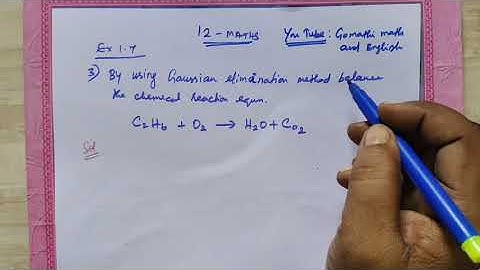 12 - MATHS
You Tube : Gomathi math
and English
Ex 1.7
3) By using Gaussian elimination method balance
the chemical reaction equn.
C2H6 + O2 → H2O + CO2
Sol